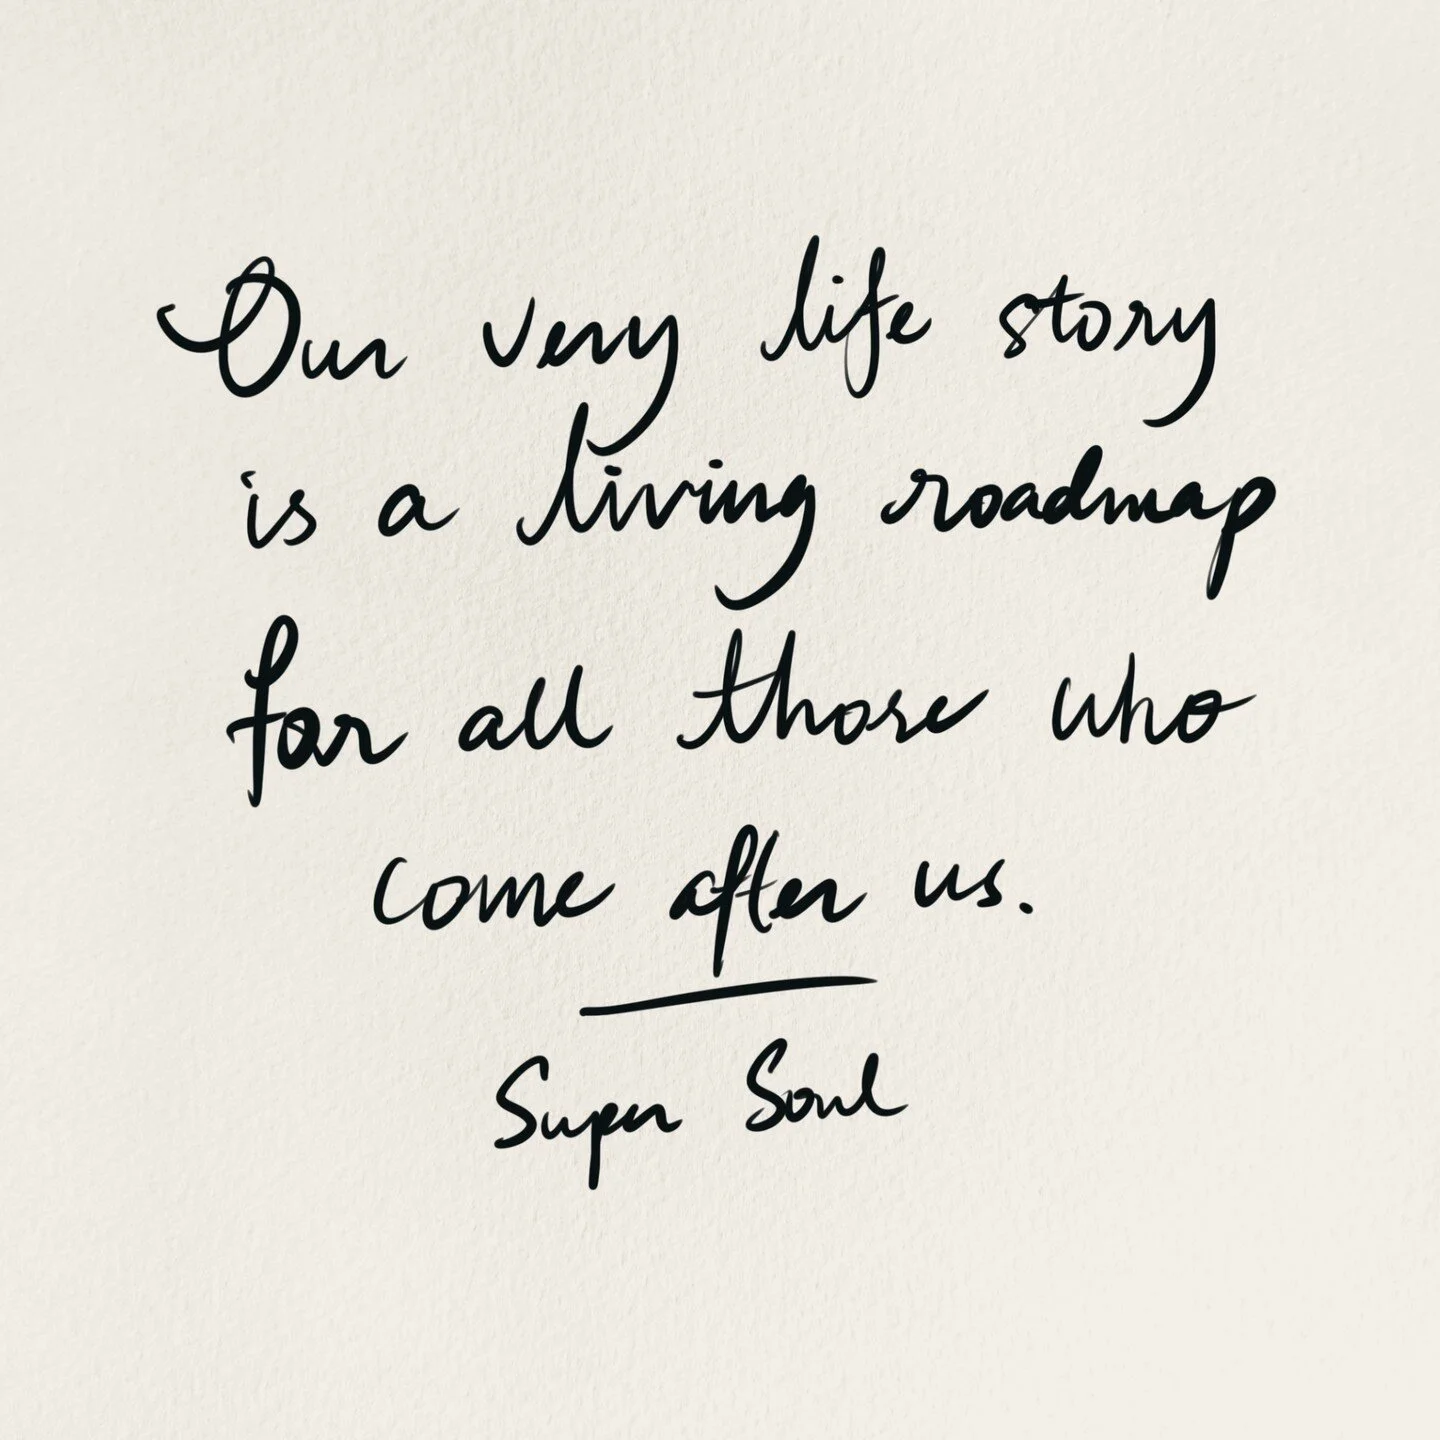 Our very life story
is a living roadmap
for all those who
come after us.
Super Soul